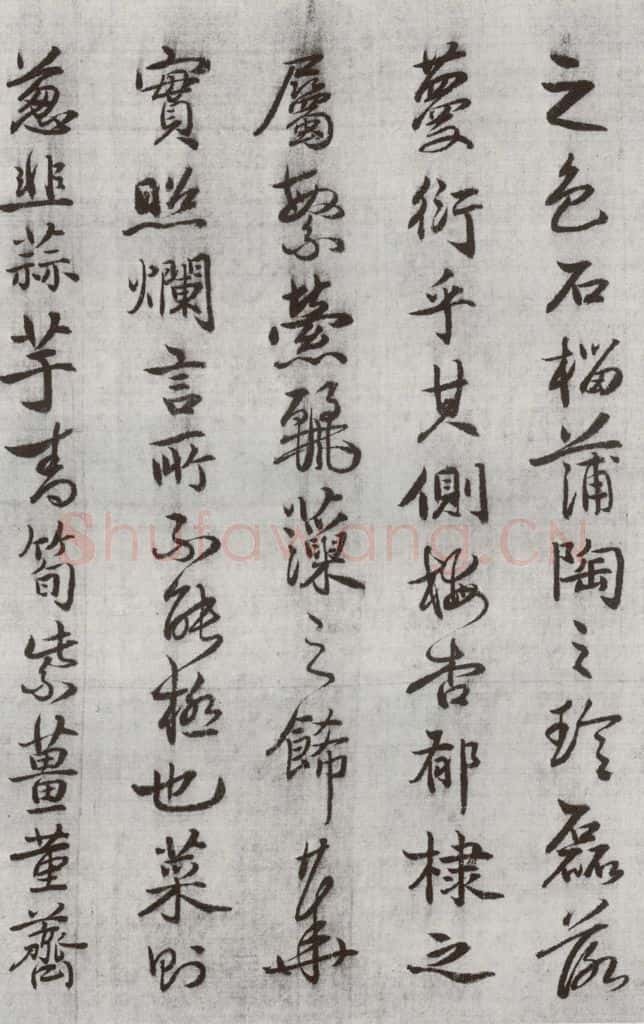 之色石榴蒲陶之珍磊落
蔓衍乎其側梅杏郁棣之
屬繁榮麗藻之飾華
實照爛言所不能極也菜則
蔥韭蒜芋青筍紫薑菫薺
Shufawang.CN